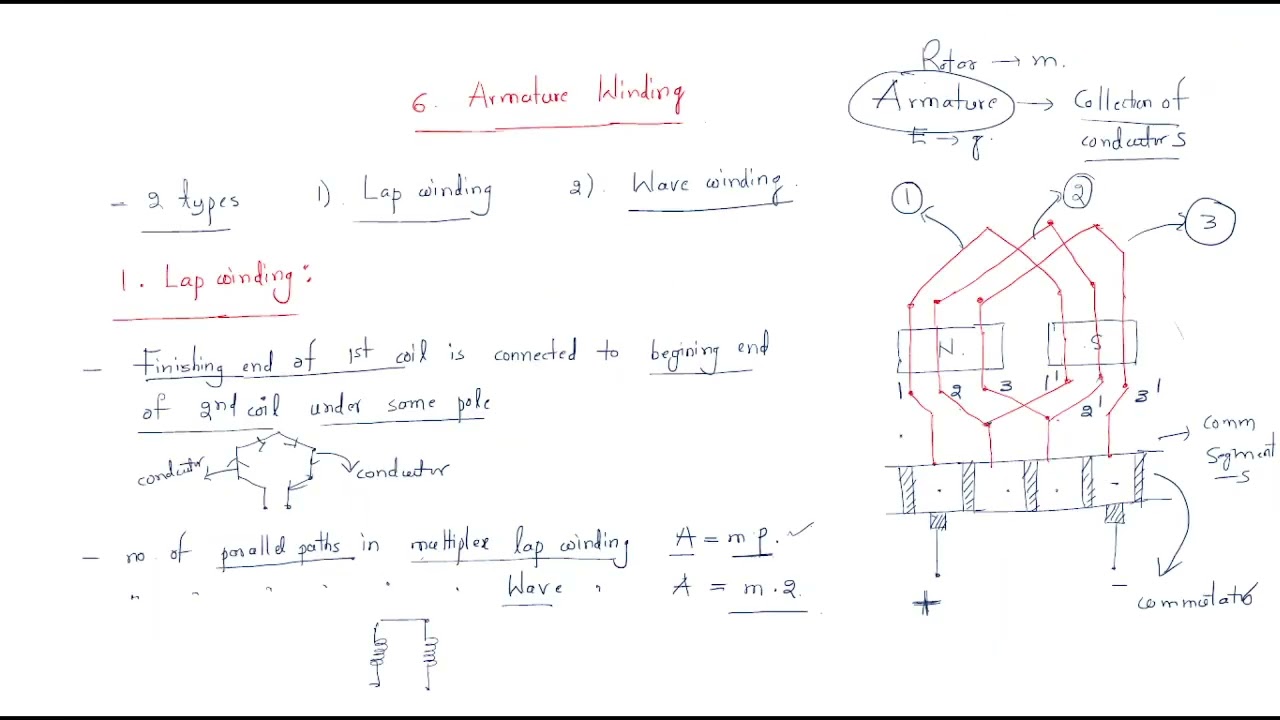 6. Armature Winding
- 2 types 1). Lap winding 2). Wave winding.
1. Lap winding:
- Finishing end of 1st coil is connected to begining end
of 2nd coil under same pole
conductor conductor
- no. of parallel paths in multiplex lap winding A = m.p. ✓
" " " " " Wave " A = m.2.
Rotor → m.
Armature → Collection of
conductors
E → g.
1 2 3
N. S
1 2 3 1' 2' 3'
Comm
Segment
-s
+ -
commutator